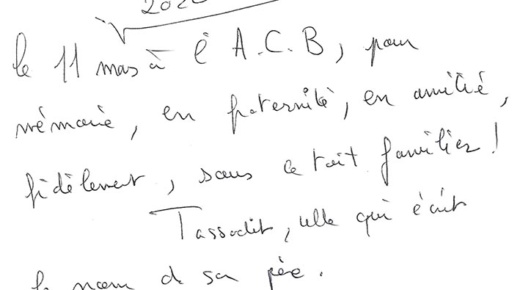 202
le 11 mars à l'A.C.B, pour
mémoire, en fraternité, en amitié,
fidèlement, sous ce toit familier !
Tassadit, celle qui écrit
le nom de son père.